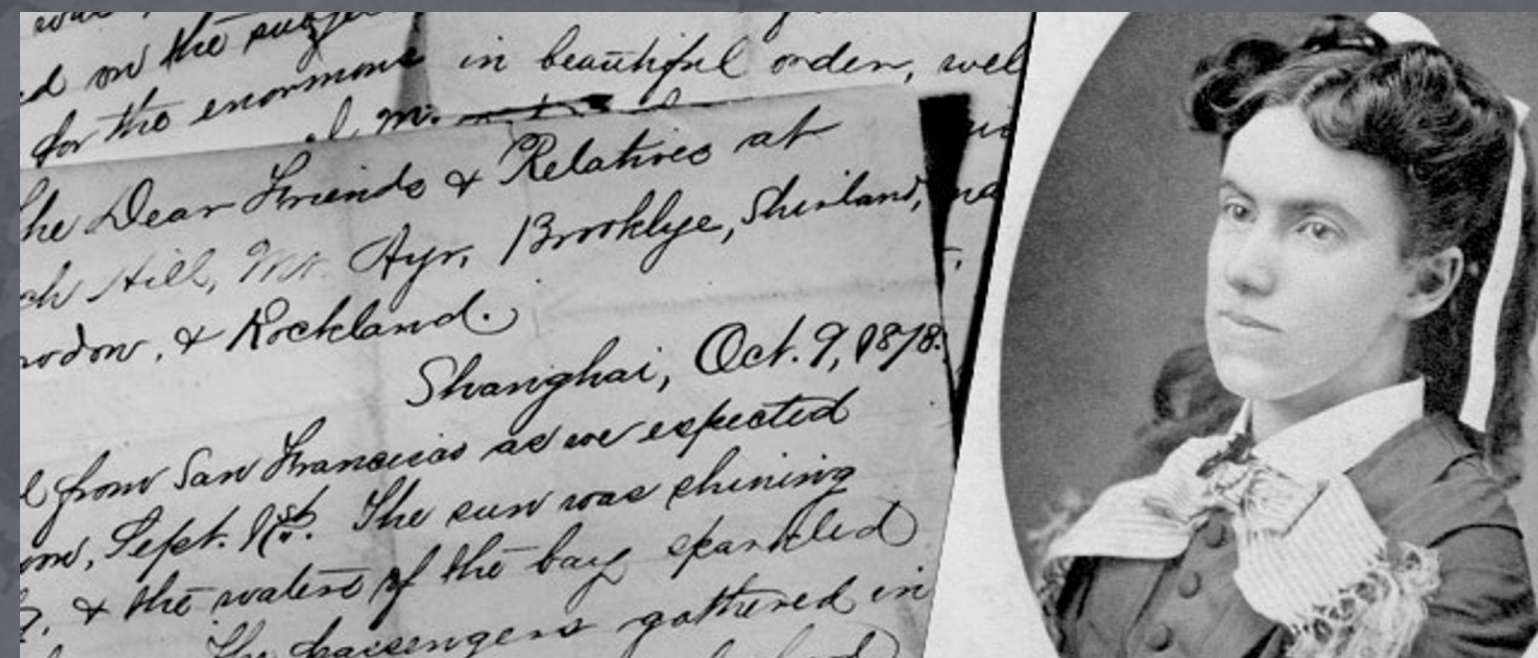 d on the
for the enormous in beautiful order, wel
The Dear Friends & Relatives at
ch Hill, Mt. Ayr, Brooklye, Shirland,
rodon, & Rockland.
Shanghai, Oct. 9, 1878.
l from San Francisco as we expected
Sept. 1st. The sun was shining
& the waters of the bay sparkled
The passengers gathered in